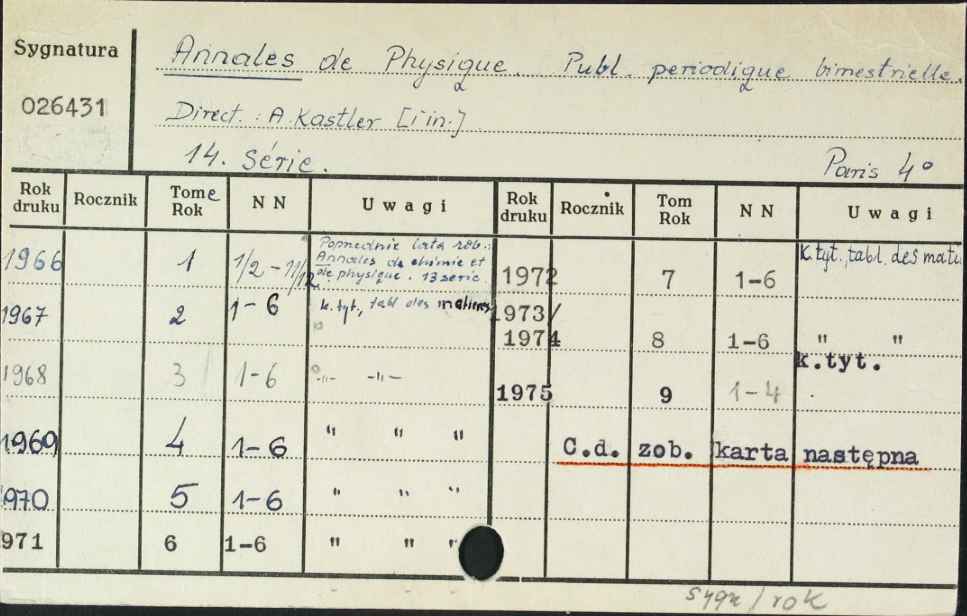 Sygnatura
026431
Annales de Physique. Publ. periodique bimestrielle.
Direct. : A. Kastler [i in.]
14. Série. Paris 4°
Rok druku Rocznik Tome Rok N N Uwagi Rok druku Rocznik Tom Rok N N Uwagi
1966 1 1/2 - 11/12 Poprednie lata zob.:
Annales de chimie et
de physique. 13 serie
1967 2 1-6 k. tyt., tabl des matieres
1968 3 1-6 -"- -"-
1969 4 1-6 " " "
1970 5 1-6 " " "
971 6 1-6 " " "
1972 7 1-6 K. tyt., tabl. des mati
1973/
1974 8 1-6 " "
1975 9 1-4 k.tyt.
C.d. zob. karta następna
sygn/rok